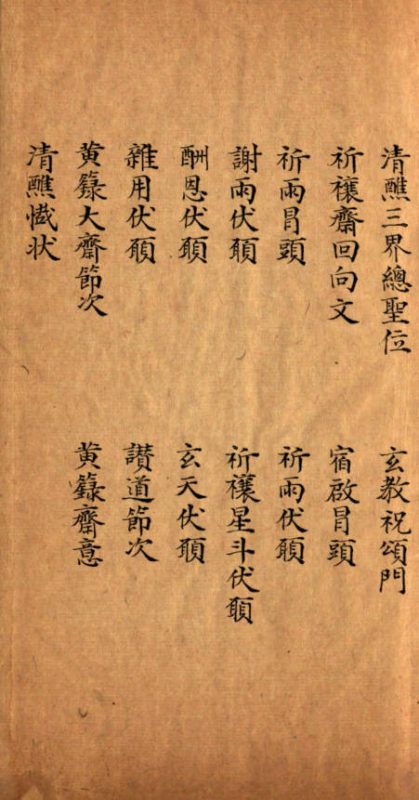 清醮三界總聖位
玄教祝頌門
祈禳齋回向文
宿啟冒頭
祈雨冒頭
祈雨伏願
謝雨伏願
祈禳星斗伏願
酬恩伏願
玄天伏願
雜用伏願
讃道節次
黄籙大齋節次
黄籙齋意
清醮懺状